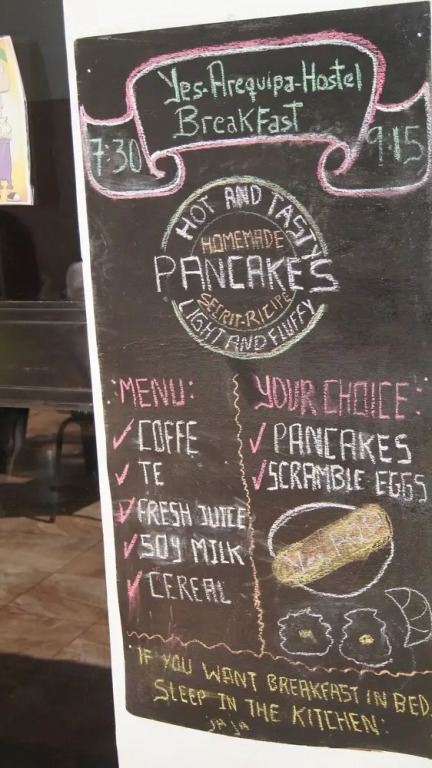 Yes-Arequipa-Hostel
BreakFast
7:30
9:15
HOT AND TASTY
HOMEMADE
PANCAKES
SECRIT-RICIPE
LIGHT AND FLUFFY
MENU:
COFFE
TE
FRESH JUICE
SOY MILK
CEREAL
YOUR CHOICE:
PANCAKES
SCRAMBLE EGGS
IF YOU WANT BREAKFAST IN BED.
SLEEP IN THE KITCHEN.
JAJA